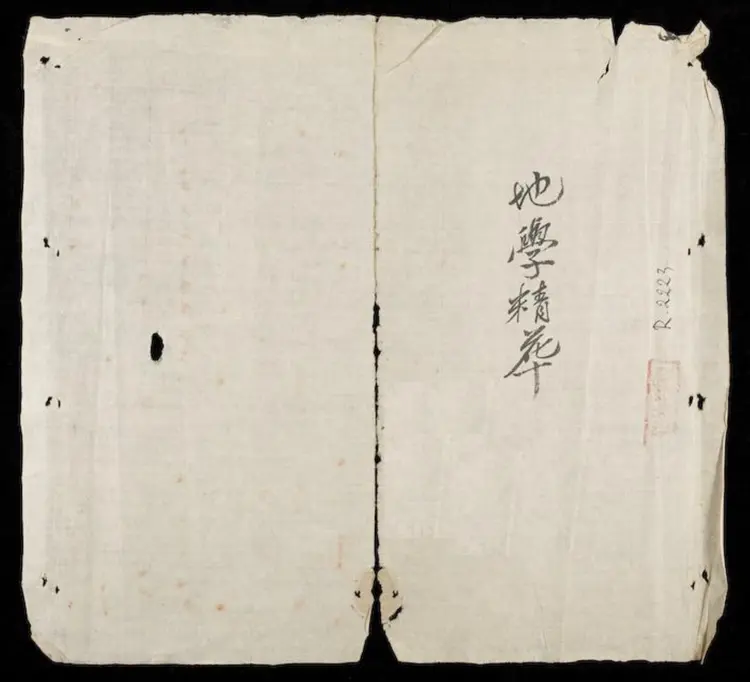 地學精華
R.2223